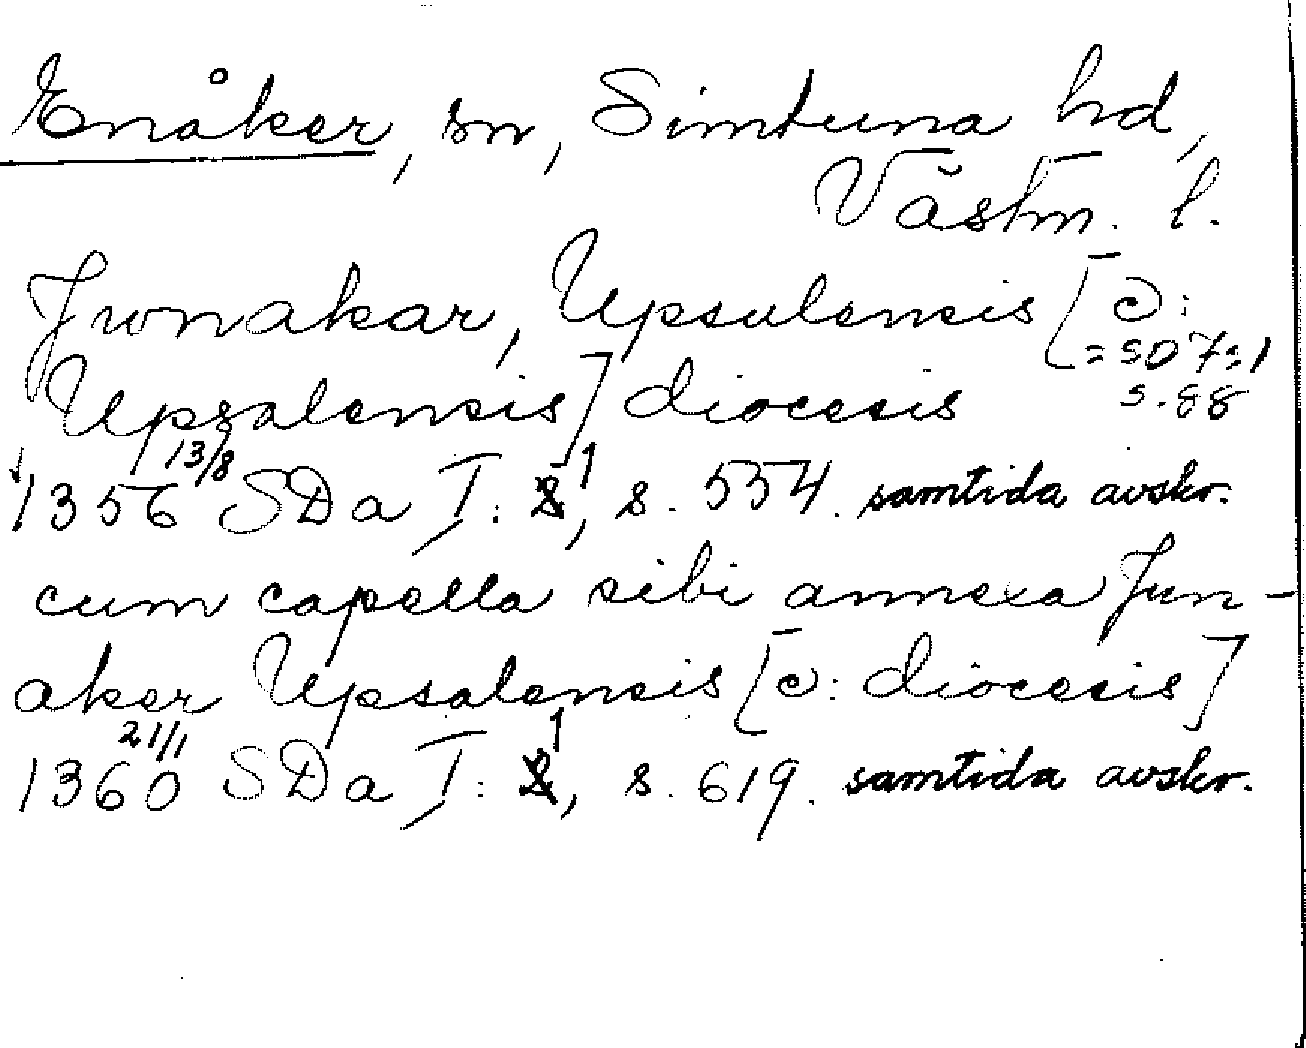 Enåker, sn, Simtuna hd,
Västm. l.
Jwnakar, Upsulensis [ɔ:
= SD 7:1
s. 88
Upsalensis] diocesis
1356 13/8 SDa I: 1, s. 534. samtida avskr.
cum capella sibi annexa Jun-
aker Upsalensis [ɔ: diocesis]
1360 21/1 SDa I: 1, s. 619. samtida avskr.